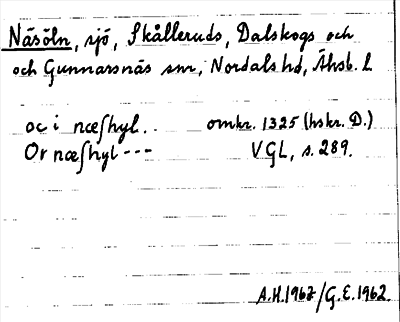 Näsöln, sjö, Skålleruds, Dalskogs och
och Gunnarsnäs snr, Nordals hd, Ähsb. l
oc i næſhyl.. omkr. 1325 (hskr. D.)
Or næſhyl --- VGL, s. 289.
A.H.1967/G.E.1962.